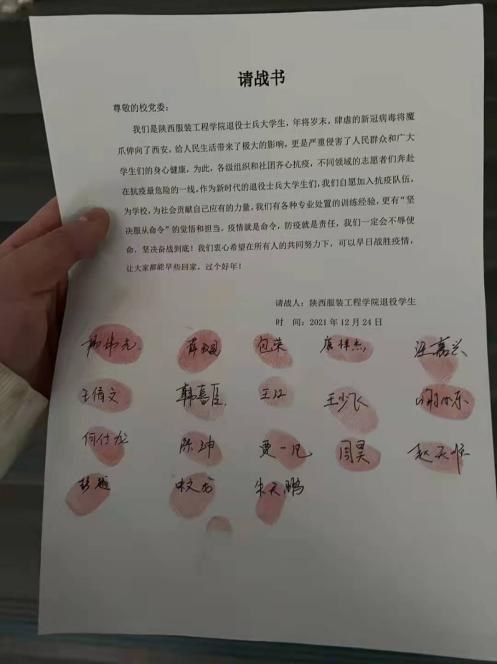 请战书
尊敬的校党委：
我们是陕西服装工程学院退役士兵大学生，年将岁末，肆虐的新冠病毒将魔
爪伸向了西安，给人民生活带来了极大的影响，更是严重侵害了人民群众和广大
学生们的身心健康，为此，各级组织和社团齐心抗疫，不同领域的志愿者们奔赴
在抗疫最危险的一线，作为新时代的退役士兵大学生们，我们自愿加入抗疫队伍，
为学校，为社会贡献自己应有的力量，我们有各种专业处置的训练经验，更有“坚
决服从命令”的觉悟和担当，疫情就是命令，防疫就是责任，我们一定会不辱使
命，坚决奋战到底！我们衷心希望在所有人的共同努力下，可以早日战胜疫情，
让大家都能早些回家，过个好年！
请战人：陕西服装工程学院退役学生
时 间：2021 年 12 月 24 日
包荣
王倩文 韩嘉臣 王江 王少飞
何仕龙 陈坤 贾一凡 闫昊
朱天鹏